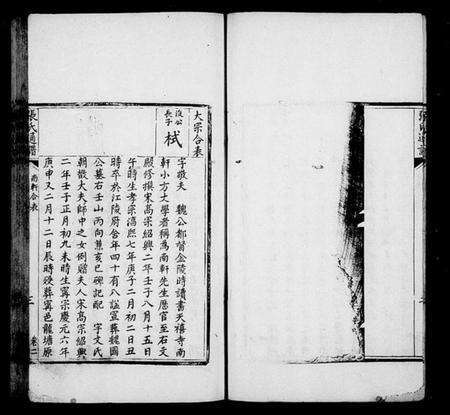 大宗合叅
浚公長子 栻
字敬夫 魏公都督金陵時讀書天禧寺南
軒小方大學者稱為南軒先生歷官至右文
殿修撰宋高宗紹興二年壬子八月十五日
午時生孝宗淳熙七年庚子二月初二日丑
時卒於江陵府舍年四十有八謚宣葬魏國
公墓右壬山丙向兼亥巳碑記配 宇文氏
朝散大夫師中之女例贈夫人宋高宗紹興
二年壬子正月初九未時生寧宗慶元六年
庚申又二月十二日辰時歿葬寧邑龍塘原
張氏通譜
南軒合叅
卷二